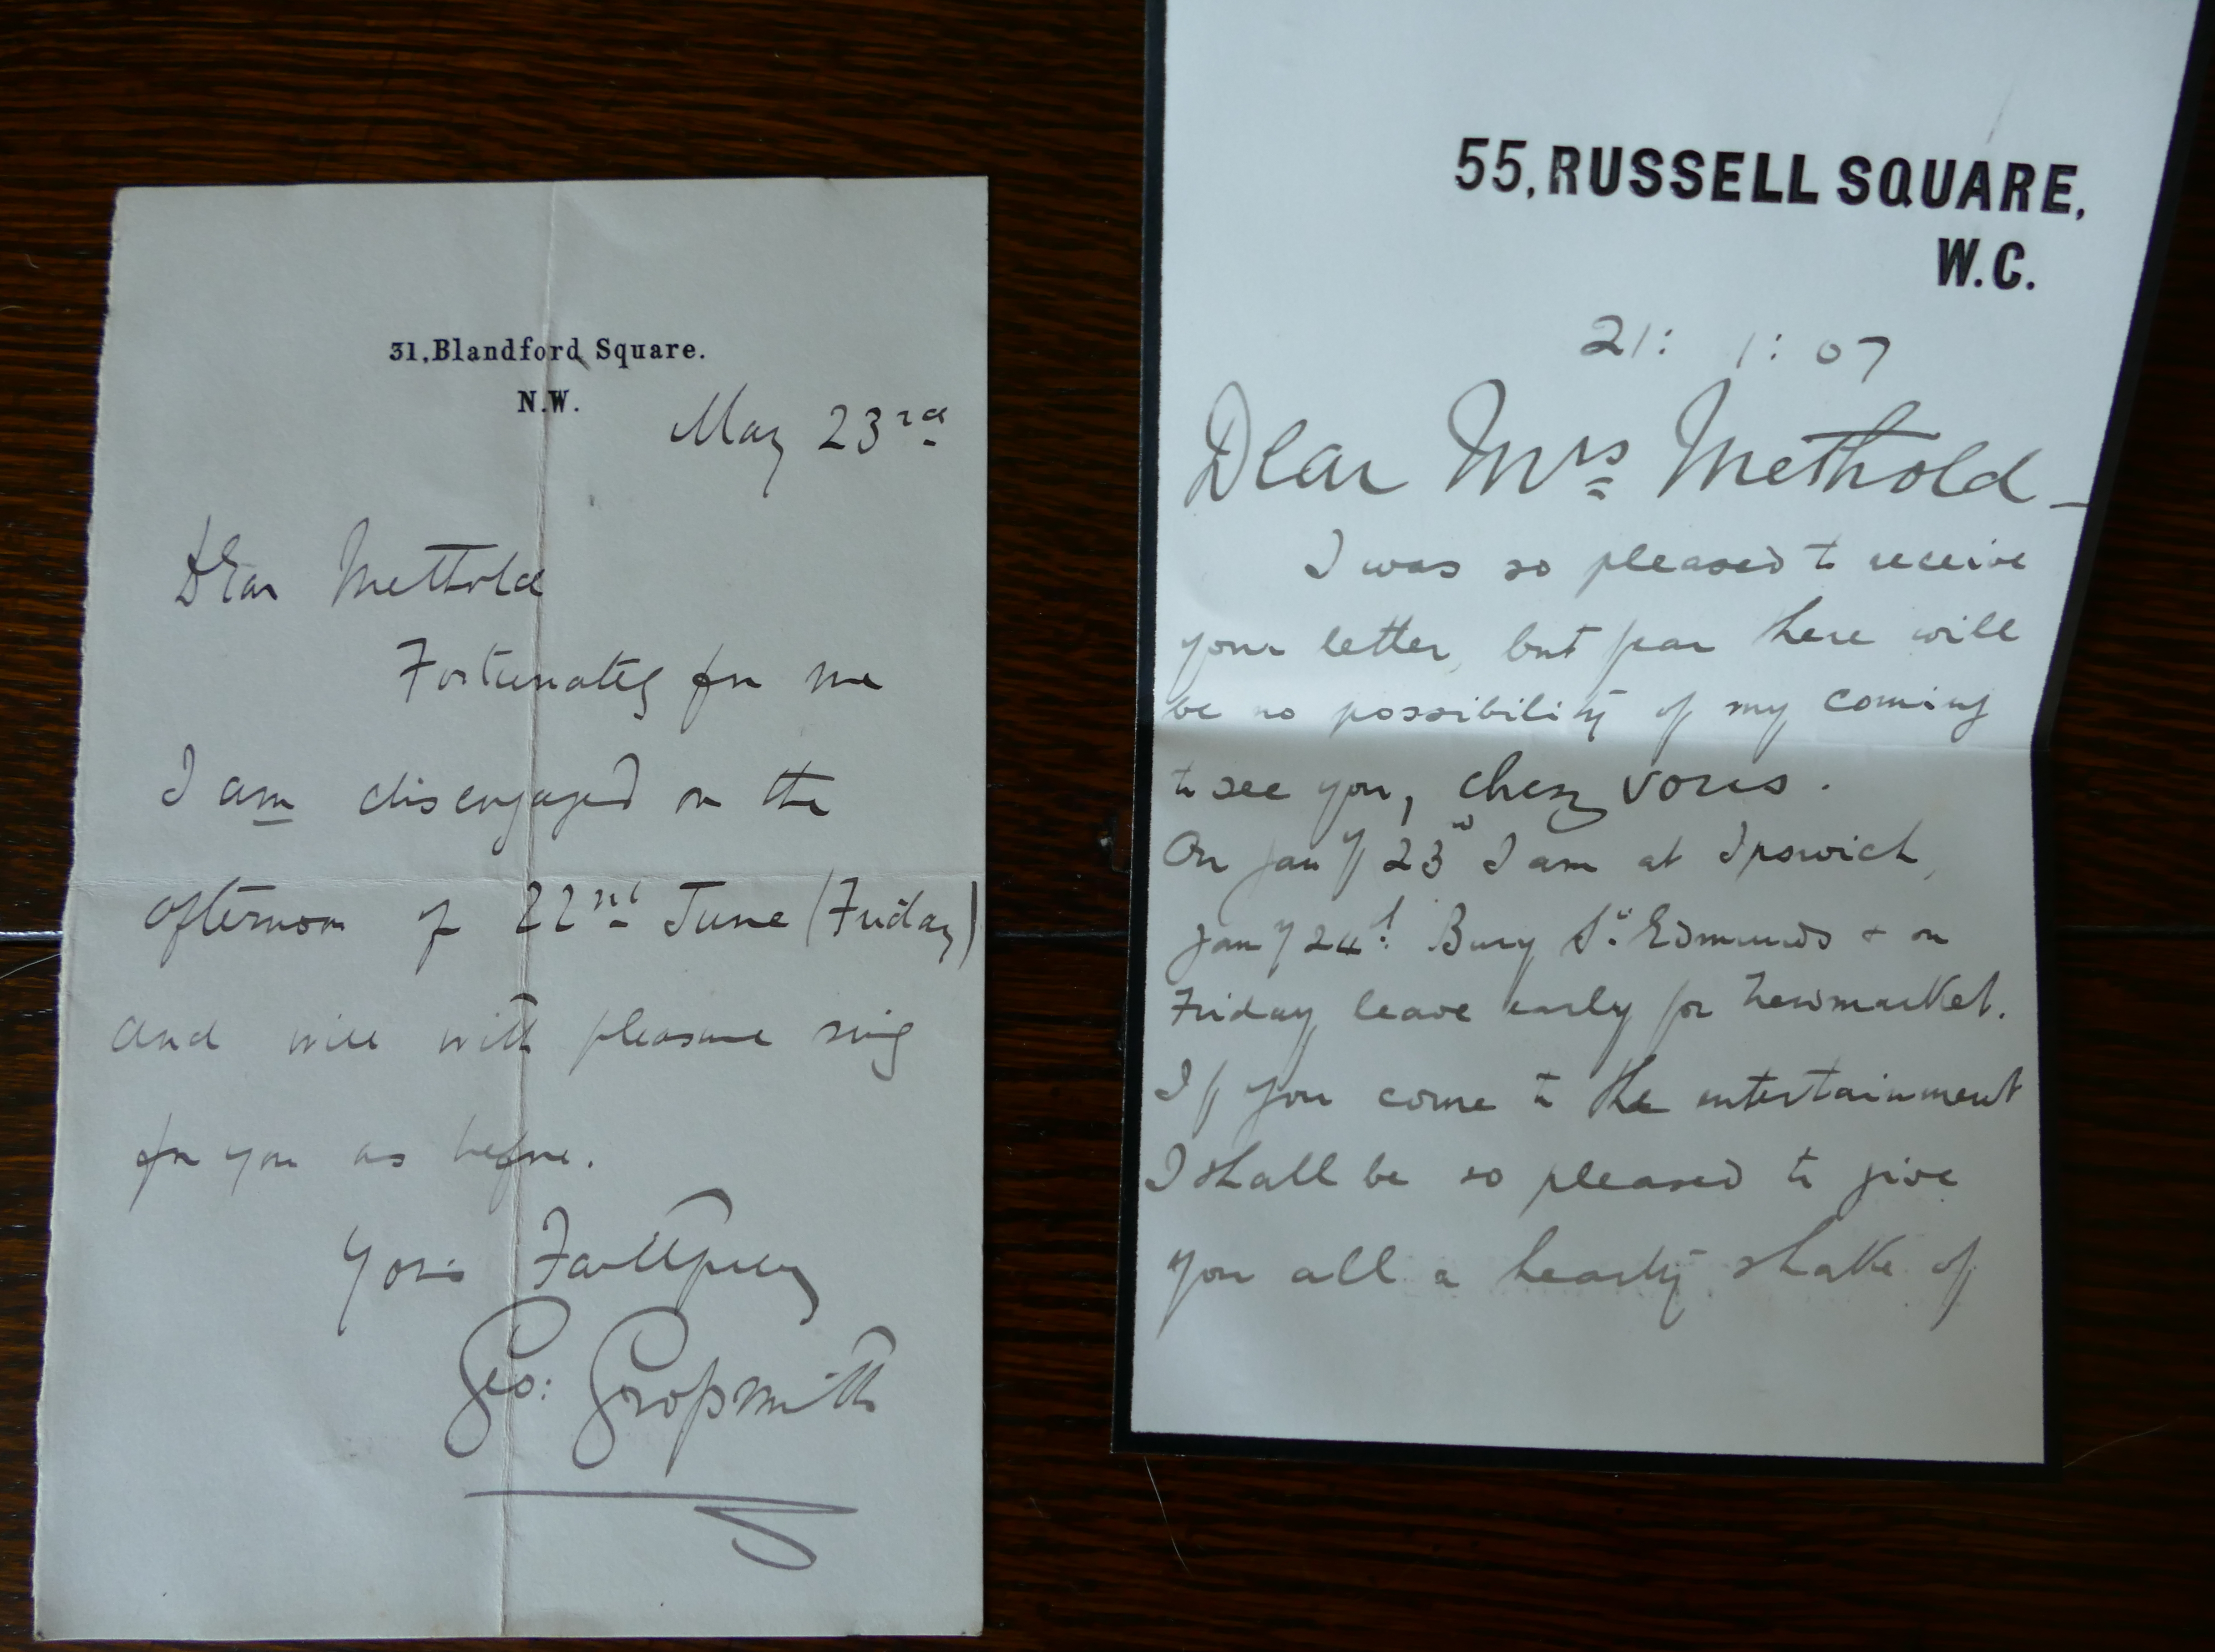 31, Blandford Square.
N.W.
May 23rd
Dear Methold
Fortunately for me
I am disengaged on the
afternoon of 22nd June (Friday)
and will with pleasure sing
for you as before.
Yours Faithfully
Geo: Grossmith
55, RUSSELL SQUARE,
W.C.
21: 1: 07
Dear Mrs Methold –
I was so pleased to receive
your letter, but fear there will
be no possibility of my coming
to see you, chez vous.
On Jany 23rd I am at Ipswich,
Jany 24th Bury St. Edmunds & on
Friday leave early for Newmarket.
If you come to the entertainment
I shall be so pleased to give
you all a hearty shake of